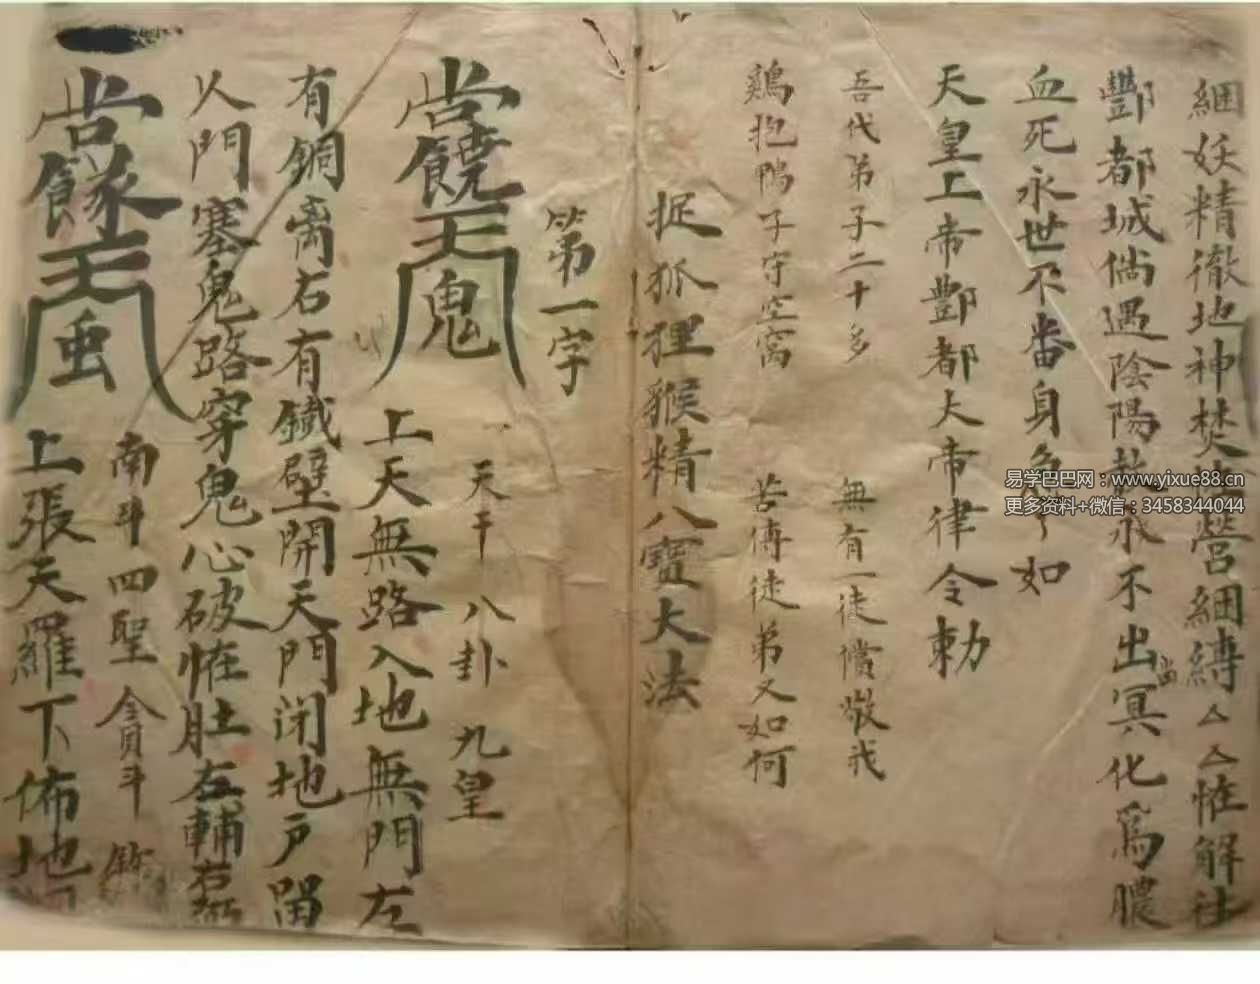 綑妖精徹地神焚
營綑縛厶厶恠解
酆都城倘遇陰陽
永不出冥化爲膿
當
血死永世不番身
如
天皇上帝酆都大帝律令勅
吾代弟子二十多 無有一徒償敬我
鷄抱鴨子守空窩 苦傅徒弟又如何
捉狐狸猴精八寶大法
第一字
天干 八卦 九皇
鬼
上天無路入地無門左
有銅离右有鐵壁開天門閉地戶留
人門塞鬼路穿鬼心破恠肚左輔右弼
南斗四聖貪斗
上張天羅下佈地
易学巴巴网：www.yixue88.cn
更多资料+微信：3458344044